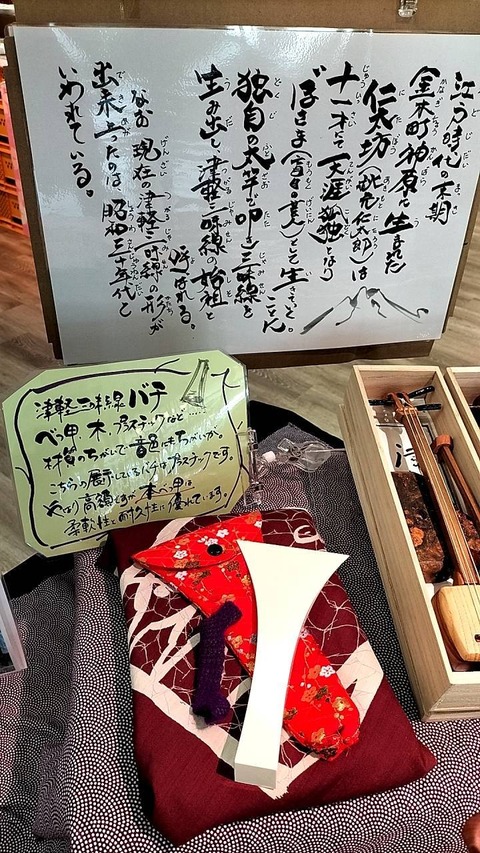 江戸時代の末期
金木町神原に生まれた
仁太坊(秋元仁太郎)は
十一才にて天涯孤独となり
ぼさま(盲目の芸人)として生きることに。
独自の太竿で叩き三味線を
生み出し、津軽三味線の始祖と
呼ばれる。
なお現在の津軽三味線の形が
出来上ったのは昭和三十年代と
いわれている。
津軽三味線バチ
べっ甲、木、プラスチックなど……
材質のちがいで音色にもちがいが。
こちらの展示しているバチはプラスチックです。
やはり高額ですが本べっ甲は
柔軟性と耐久性に優れています。